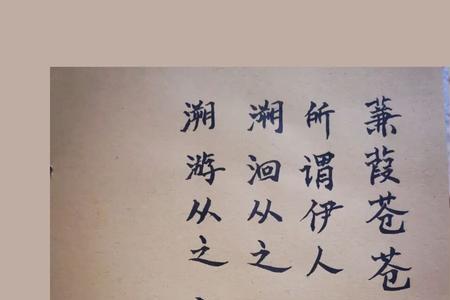 蒹葭苍苍
所谓伊人
溯洄从之
溯游从之